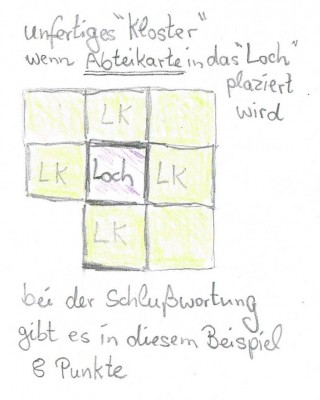 unfertiges "Kloster"
wenn Abteikarte in das "Loch"
plaziert
wird
LK
LK Loch LK
LK
bei der Schlußwortung
gibt es in diesem Beispiel
8 Punkte